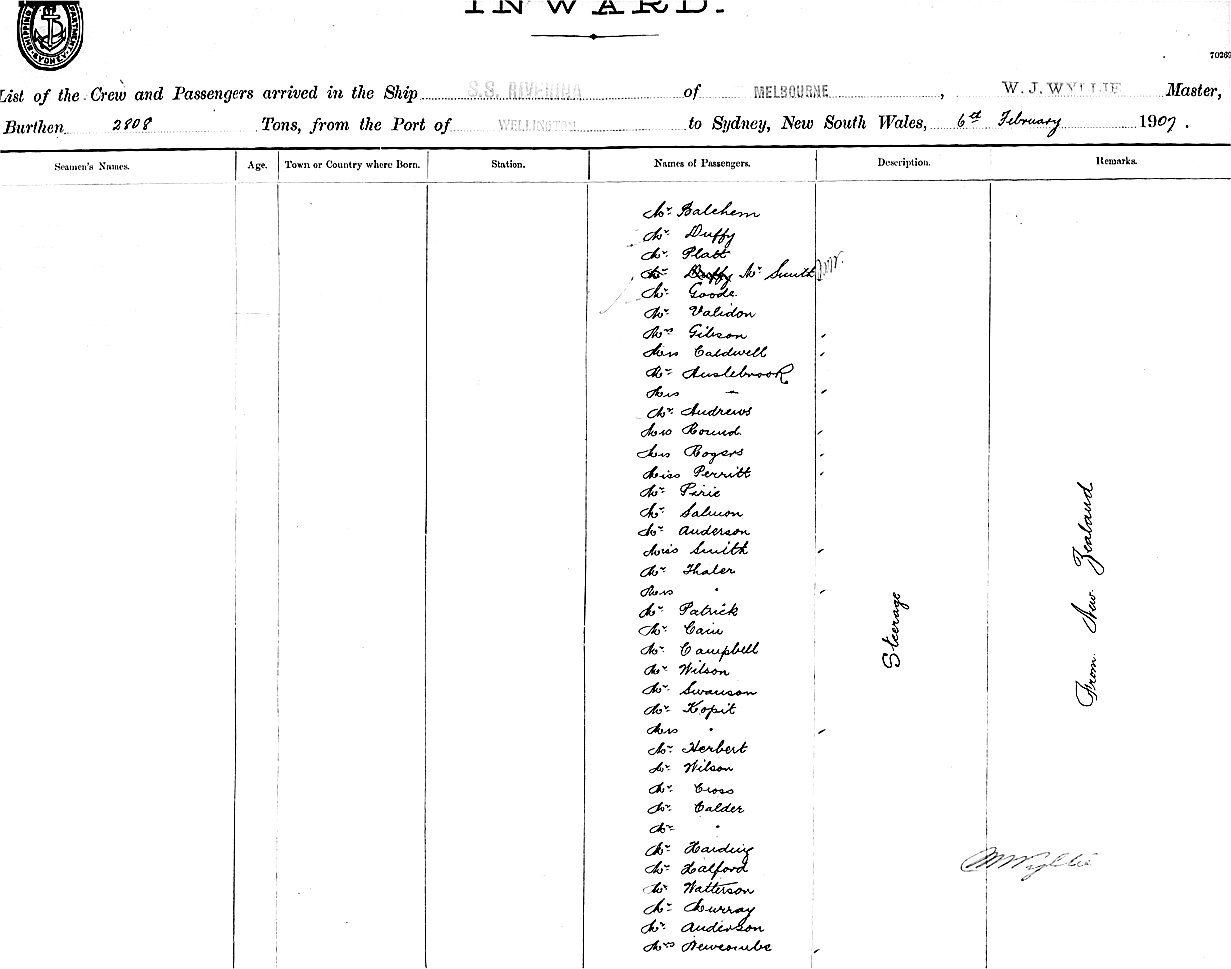 INWARD.
SHIPPING DEPARTMENT SYDNEY
7026
List of the Crew and Passengers arrived in the Ship S.S. RIVERINA of MELBOURNE, W. J. WYLLIE Master,
Burthen 2808 Tons, from the Port of WELLINGTON to Sydney, New South Wales, 6th February 1907.
Seamen's Names. Age. Town or Country where Born. Station. Names of Passengers. Description. Remarks.
Mr Balchem
Mr Duffy
Mr Platt
Mr Duffy Mr Smith
Mr Goode
Mr Validon
Mrs Gibson
Mrs Caldwell
Mr
Mrs "
Mr Andrews
Mrs Round
Mrs Rogers
Miss Perritt
Mr Pirie
Mr Salmon
Mr Anderson
Miss Smith
Mr Thaler
Mrs "
Mr Patrick
Mr Cain
Mr Campbell
Mr Wilson
Mr Swanson
Mr Kopit
Mrs "
Mr Herbert
Mr Wilson
Mr Cross
Mr Calder
Mr "
Mr Harding
Mr Halford
Mr Watterson
Mr Murray
Mr Anderson
Mrs Newcombe
Steerage
From New Zealand
Wyllie